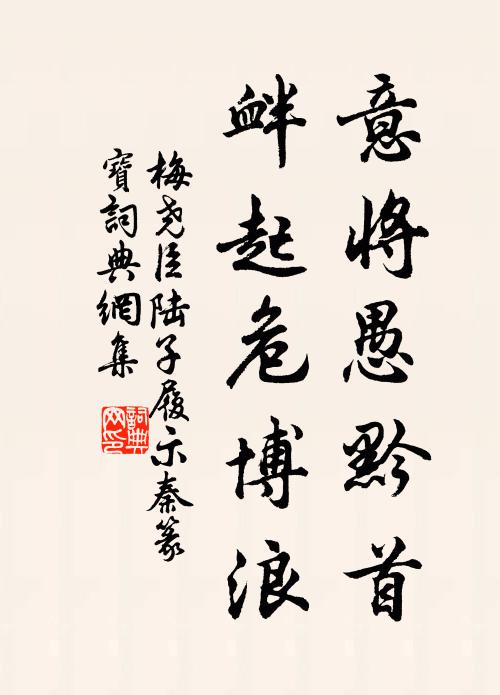 意將愚黔首
衅起危博浪
梅尧臣陆子履示秦篆
寶詞典網集
詞典
网印